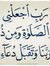 رَبِّ اجْعَلْنِي
الصَّلَوٰةِ وَمِن ذ
نَا وَتَقَبَّلْ دُعَآءِ